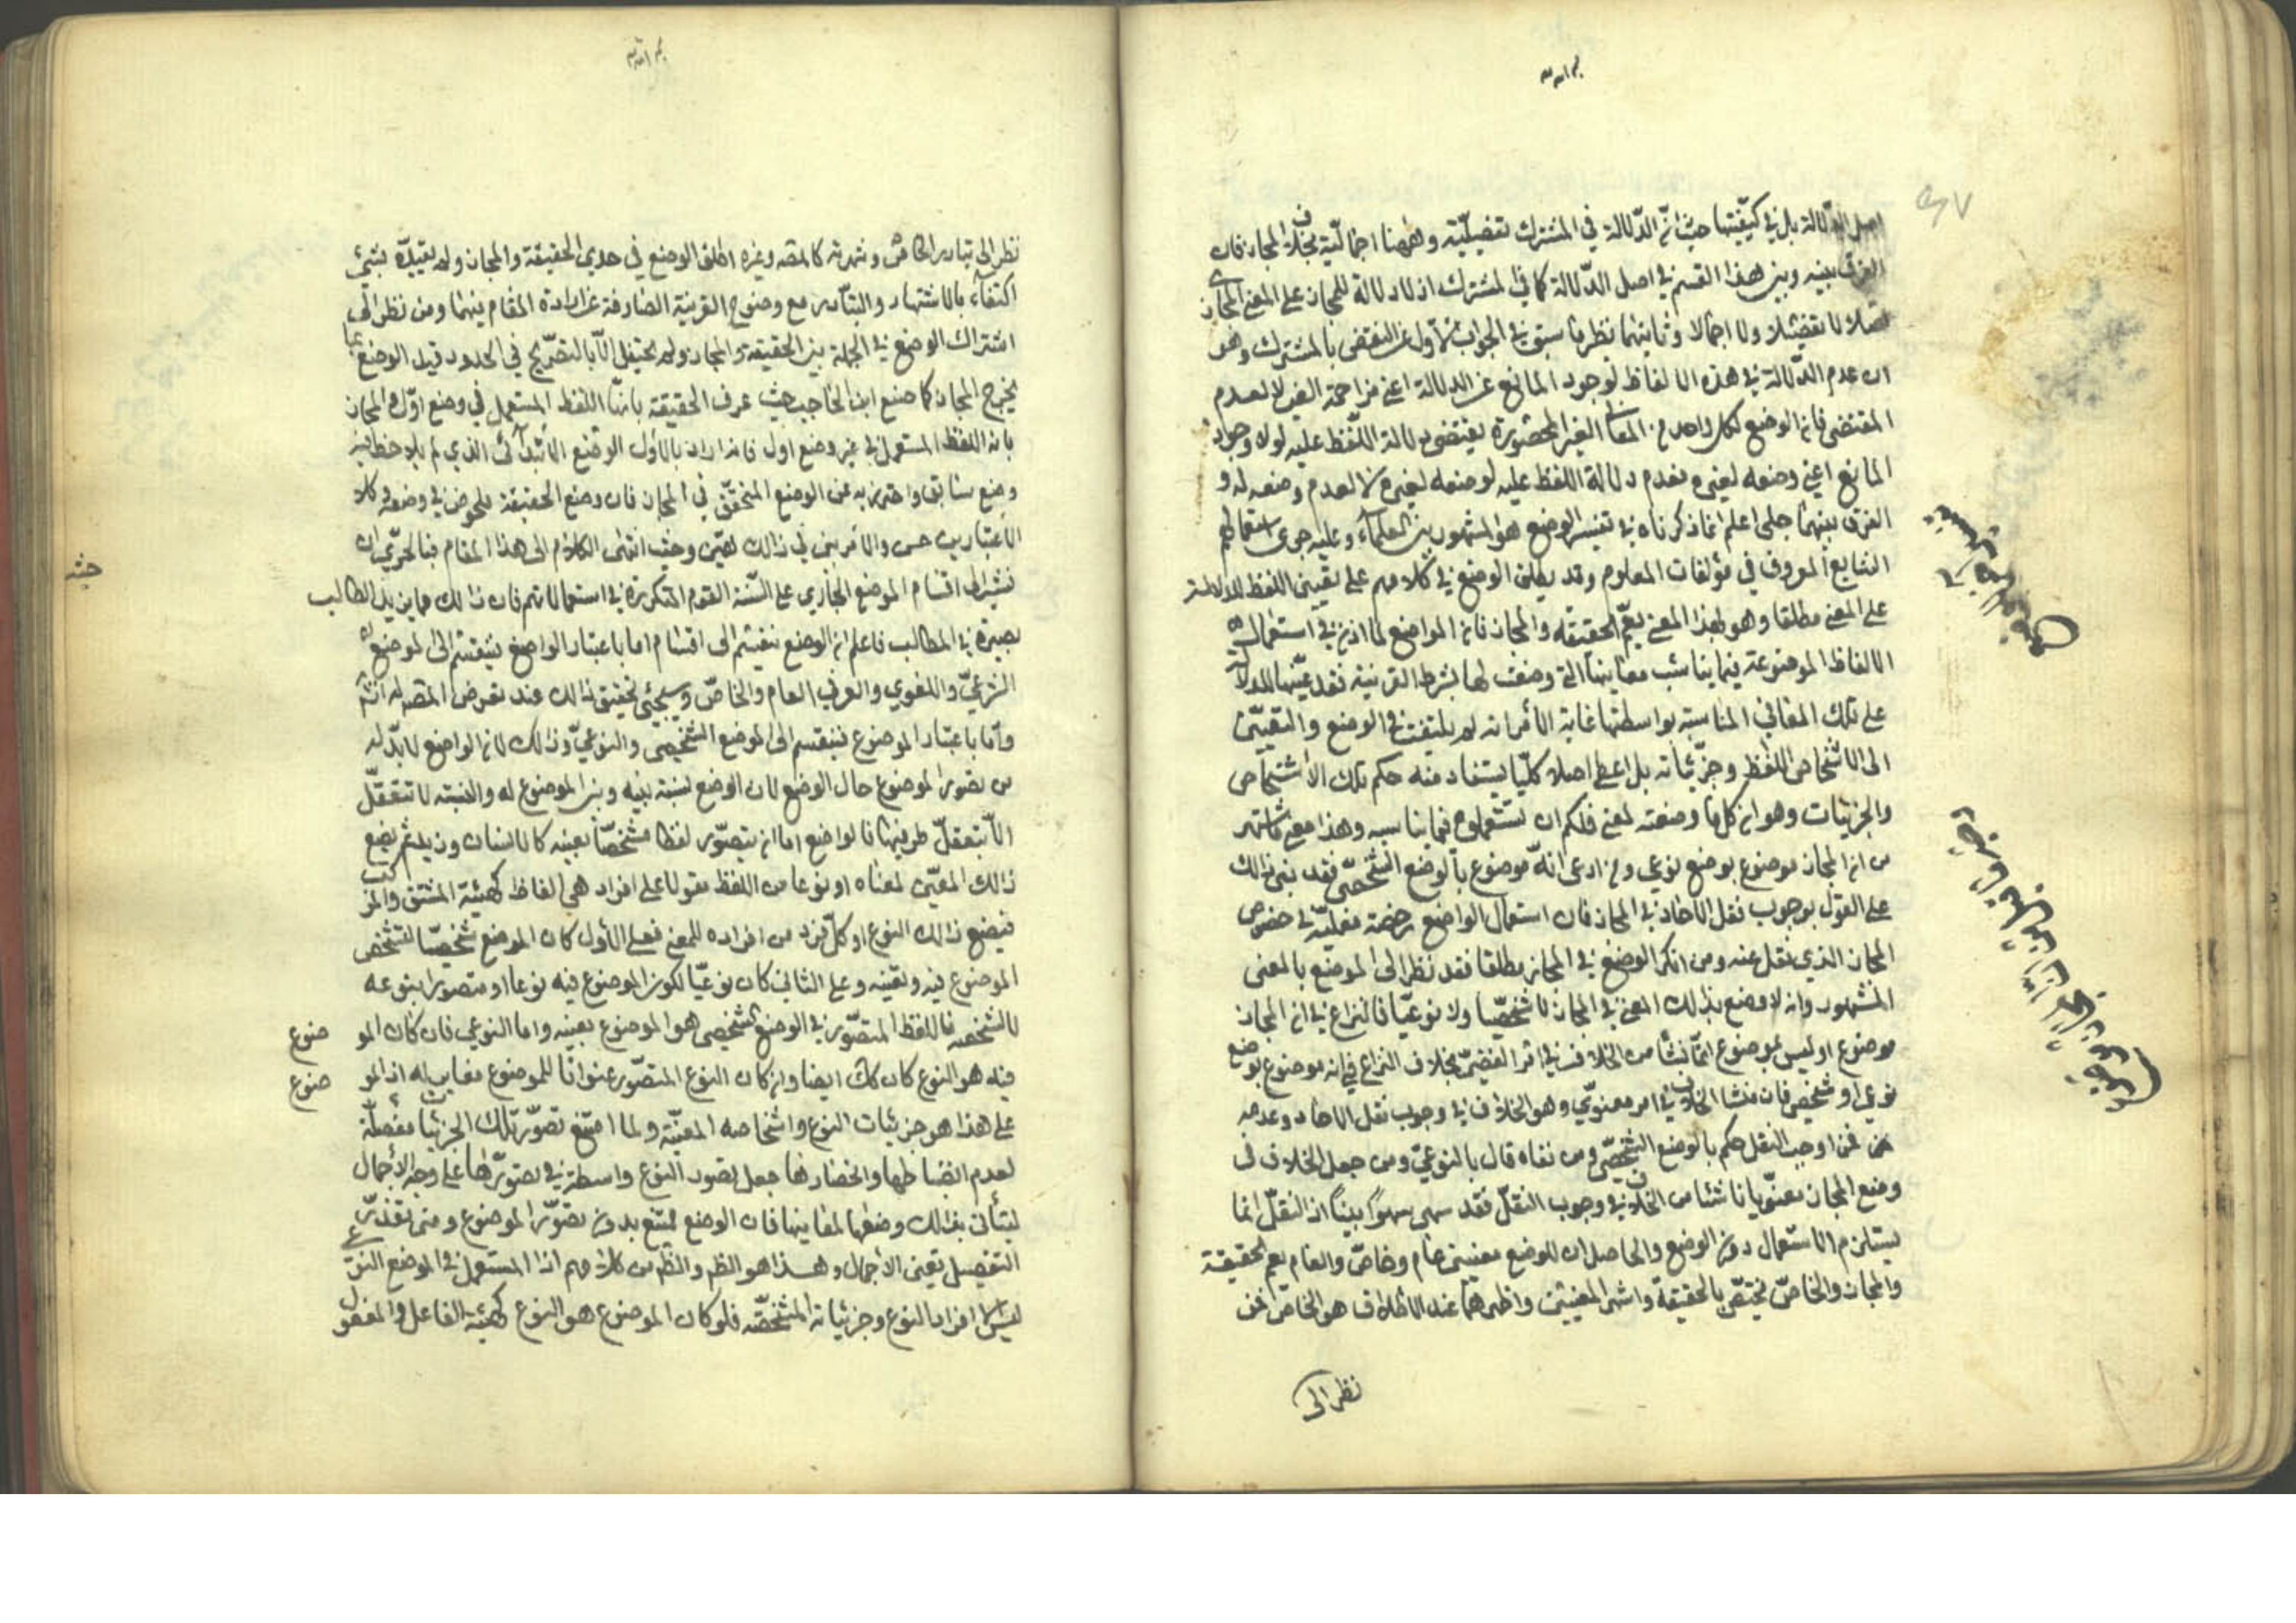 اصل الدّلالة بل في كيفيّتها حيث انّ الدّلالة في المشترك تفصيليّة وههنا اجماليّة بخلاف المجاز فان
الفرق بينه وبين هذا القسم في اصل الدّلالة كما في المشترك اذ لا دلالة للمجاز على المعنى المجازي
اصلا لا تفصيلا ولا اجمالا وثانيهما نظير ما سبق في الجواب الاول عن النقض بالمشترك وهو
ان عدم الدّلالة في هذه الالفاظ لوجود المانع عن الدلالة اعني مزاحمة الغير لا لعدم
المقتضى فان الوضع لكل واحد من المعاني الغير المحصورة يقتضي دلالة اللّفظ عليه لولا وجود
المانع اعني وضعه لغيره فعدم دلالة اللفظ عليه لوضعه لغيره لا لعدم وضعه له و
الفرق بينهما جلي اعلم ان ما ذكرناه في تفسير الوضع هو المشهور بين العلماء وعليه جرى استعمالهم
الشايع المعروف في مؤلفات العلوم وقد يطلق الوضع في كلامهم على تعيين اللفظ للدلالة
على المعنى مطلقا وهو بهذا المعنى يعم الحقيقة والمجاز فان الواضع لما اذن في استعمال
الالفاظ الموضوعة فيما يناسب معانيها التي وضعت لها بشرط القرينة فقد عيّنها للدلالة
على تلك المعاني المناسبة بواسطتها غاية الأمر انه لم يلتفت في الوضع والتعيين
الى الاشخاص اللفظ وجزئياته بل اعطى اصلا كليّا يستفاد منه حكم تلك الاشخاص
والجزئيات وهو ان كل ما وضعته لمعنى فلكم ان تستعملوه فيما يناسبه وهذا معنى ما اشتهر
من ان المجاز موضوع بوضع نوعي ومن ادعى انّه موضوع بالوضع الشخصيّ فقد بنى ذلك
على القول بوجوب نقل الآحاد في المجاز فان استعمال الواضع رخصة فعليّة في خصوص
المجاز الذي نقل عنه ومن انكر الوضع في المجاز مطلقا فقد نظر الى الوضع بالمعنى
المشهور وانه لا وضع بذلك المعنى في المجاز لا شخصيّا ولا نوعيّا فالنزاع في ان المجاز
موضوع او ليس بموضوع انّما نشأ من الخلاف في امر لفظيّ بخلاف النزاع في انه موضوع بوضع
نوعي او شخصي فان منشأ الخلاف في امر معنويّ وهو الخلاف في وجوب نقل الآحاد وعدمه
فمن اوجب النقل حكم بالوضع الشخصيّ ومن نفاه قال بالنوعيّ ومن جعل الخلاف في
وضع المجاز معنويّا ناشئا من الخلاف في وجوب النقل فقد سهى سهوا بيّنا اذ النقل انما
يستلزم الاستعمال دون الوضع والحاصل ان للوضع معنيين عام وخاصّ والعام يعم الحقيقة
والمجاز والخاصّ يختصّ بالحقيقة واشهر المعنيين واظهرهما عند الاطلاق هو الخاصّ فمن
نظر الى
نظر الى تبادر الخاص وشهرته كالمصه وغيره اطلق الوضع في حدي الحقيقة والمجاز ولم يقيّده بشيء
اكتفاء بالاشتهار والتبادر مع وضوح القرينة الصارفة عن ارادة العام فيهما ومن نظر الى
اشتراك الوضع في الجملة بين الحقيقة والمجاز ولم يحتفل الّا بالتصريح في الحدود قيد الوضع بما
يخرج المجاز كما صنع ابن الحاجب حيث عرف الحقيقة بانها اللفظ المستعمل في وضع اوّل والمجاز
بانه اللفظ المستعمل في غير وضع اول فانه اراد بالأول الوضع الابتدائى الذي لم يلاحظ فيه
وضع سابق واحترز به عن الوضع المتحقق في المجاز فان وضع الحقيقة ملحوظ في وضعه وكلا
الاعتبارين حسن والامر في ذلك هيّن وحيث انتهى الكلام الى هذا المقام فبالحريّ ان
نشير الى اقسام الوضع الجاري على السّنة القوم المتكررة في استعمالاتهم فان ذلك مما يزيد الطالب
بصيرة في المطالب فاعلم ان الوضع ينقسم الى اقسام اما باعتبار الواضع فينقسم الى الوضع
الشرعيّ واللغوي والعرفي العام والخاصّ وسيجئ تحقيق ذلك عند تعرض المصه له انشه
وامّا باعتبار الموضوع فينقسم الى الوضع الشخصي والنوعيّ وذلك لان الواضع لا بدّ له
من تصور الموضوع حال الوضع لان الوضع نسبة بينه وبين الموضوع له والنسبة لا تتعقّل
الّا بتعقّل طرفيها فالواضع اما ان يتصوّر لفظا مشخصّا بعينه كالانسان وزيد ثم يضع
ذلك المعيّن لمعناه او نوعا من اللفظ مقولا على افراد هي الفاظ كهيئة المشتق والمركب
فيضع ذلك النوع او كلّ فرد من افراده للمعنى فعلى الأول كان الوضع شخصيّا لتشخص
الموضوع فيه وتعينه وعلى الثاني كان نوعيّا لكون الموضوع فيه نوعا او متصورا بنوعه
لا بشخصه فاللفظ المتصوّر في الوضع الشخصي هو الموضوع بعينه واما النوعي فان كان الموضوع
فيه هو النوع كان كك ايضا وان كان النوع المتصوّر عنوانا للموضوع مغاير له اذ الموضوع
على هذا هو جزئيات النوع واشخاصه المعيّنة ولما امتنع تصوّر تلك الجزئيات مفصلّة
لعدم انضباطها وانحصارها جعل تصور النوع واسطة في تصوّرها على وجه الاجمال
ليتأتى بذلك وضعها لمعانيها فان الوضع ممتنع بدون تصوّر الموضوع ومتى تعذّر
التفصيل تعين الاجمال وهذا هو الظم والظم من كلامهم اذا المستعمل في الوضع النوعي
ليس الا افراد النوع وجزئياته المشخصّه فلو كان الموضوع هو النوع كهيئة الفاعل والمفعول